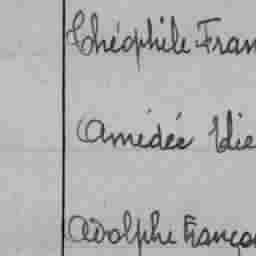 Théophile Fran
Amédée Elie
Adolphe Franço